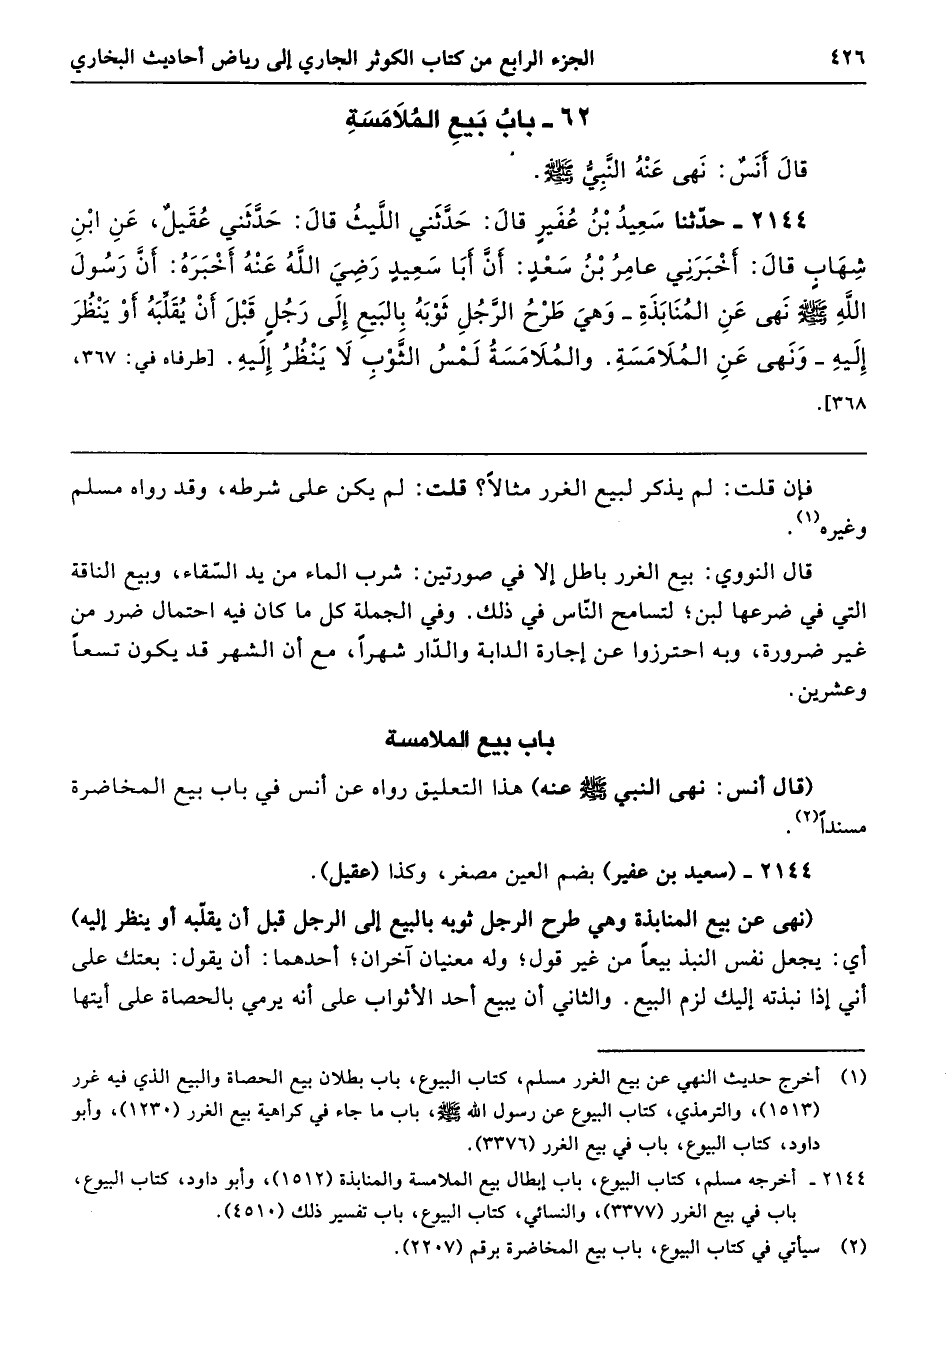 ٤٢٦ الجزء الرابع من كتاب الكوثر الجاري إلى رياض أحاديث البخاري
٦٢ ـ بابُ بَيعِ المُلَامَسَةِ
قالَ أَنَسٌ: نَهى عَنْهُ النَّبِيُّ ﷺ.
٢١٤٤ ـ حدّثنا سَعِيدُ بْنُ عُفَيرٍ قالَ: حَدَّثَني اللَّيثُ قالَ: حَدَّثَني عُقَيلٌ، عَنِ ابْنِ
شِهَابٍ قالَ: أَخْبَرَنِي عامِرُ بْنُ سَعْدٍ: أَنَّ أَبَا سَعِيدٍ رَضِيَ اللَّهُ عَنْهُ أَخْبَرَهُ: أَنَّ رَسُولَ
اللَّهِ ﷺ نَهى عَنِ المُنَابَذَةِ ـ وَهيَ طَرْحُ الرَّجُلِ ثَوْبَهُ بِالبَيعِ إِلَى رَجُلٍ قَبْلَ أَنْ يُقَلِّبَهُ أَوْ يَنْظُرَ
إِلَيهِ ـ وَنَهى عَنِ المُلَامَسَةِ. والمُلَامَسَةُ لَمْسُ الثَّوْبِ لَا يَنْظُرُ إِلَيهِ. [طرفاه في: ٣٦٧،
٣٦٨].
فإن قلت: لم يذكر لبيع الغرر مثالاً؟ قلت: لم يكن على شرطه، وقد رواه مسلم
وغيره(١).
قال النووي: بيع الغرر باطل إلا في صورتين: شرب الماء من يد السّقاء، وبيع الناقة
التي في ضرعها لبن؛ لتسامح النّاس في ذلك. وفي الجملة كل ما كان فيه احتمال ضرر من
غير ضرورة، وبه احترزوا عن إجارة الدابة والدّار شهراً، مع أن الشهر قد يكون تسعاً
وعشرين.
باب بيع الملامسة
(قال أنس: نهى النبي ﷺ عنه) هذا التعليق رواه عن أنس في باب بيع المخاضرة
مسنداً(٢).
٢١٤٤ ـ (سعيد بن عفير) بضم العين مصغر، وكذا (عقيل).
(نهى عن بيع المنابذة وهي طرح الرجل ثوبه بالبيع إلى الرجل قبل أن يقلّبه أو ينظر إليه)
أي: يجعل نفس النبذ بيعاً من غير قول؛ وله معنيان آخران؛ أحدهما: أن يقول: بعتك على
أني إذا نبذته إليك لزم البيع. والثاني أن يبيع أحد الأثواب على أنه يرمي بالحصاة على أيتها
(١) أخرج حديث النهي عن بيع الغرر مسلم، كتاب البيوع، باب بطلان بيع الحصاة والبيع الذي فيه غرر
(١٥١٣)، والترمذي، كتاب البيوع عن رسول الله ﷺ، باب ما جاء في كراهية بيع الغرر (١٢٣٠)، وأبو
داود، كتاب البيوع، باب في بيع الغرر (٣٣٧٦).
٢١٤٤ ـ أخرجه مسلم، كتاب البيوع، باب إبطال بيع الملامسة والمنابذة (١٥١٢)، وأبو داود، كتاب البيوع،
باب في بيع الغرر (٣٣٧٧)، والنسائي، كتاب البيوع، باب تفسير ذلك (٤٥١٠).
(٢) سيأتي في كتاب البيوع، باب بيع المخاضرة برقم (٢٢٠٧).